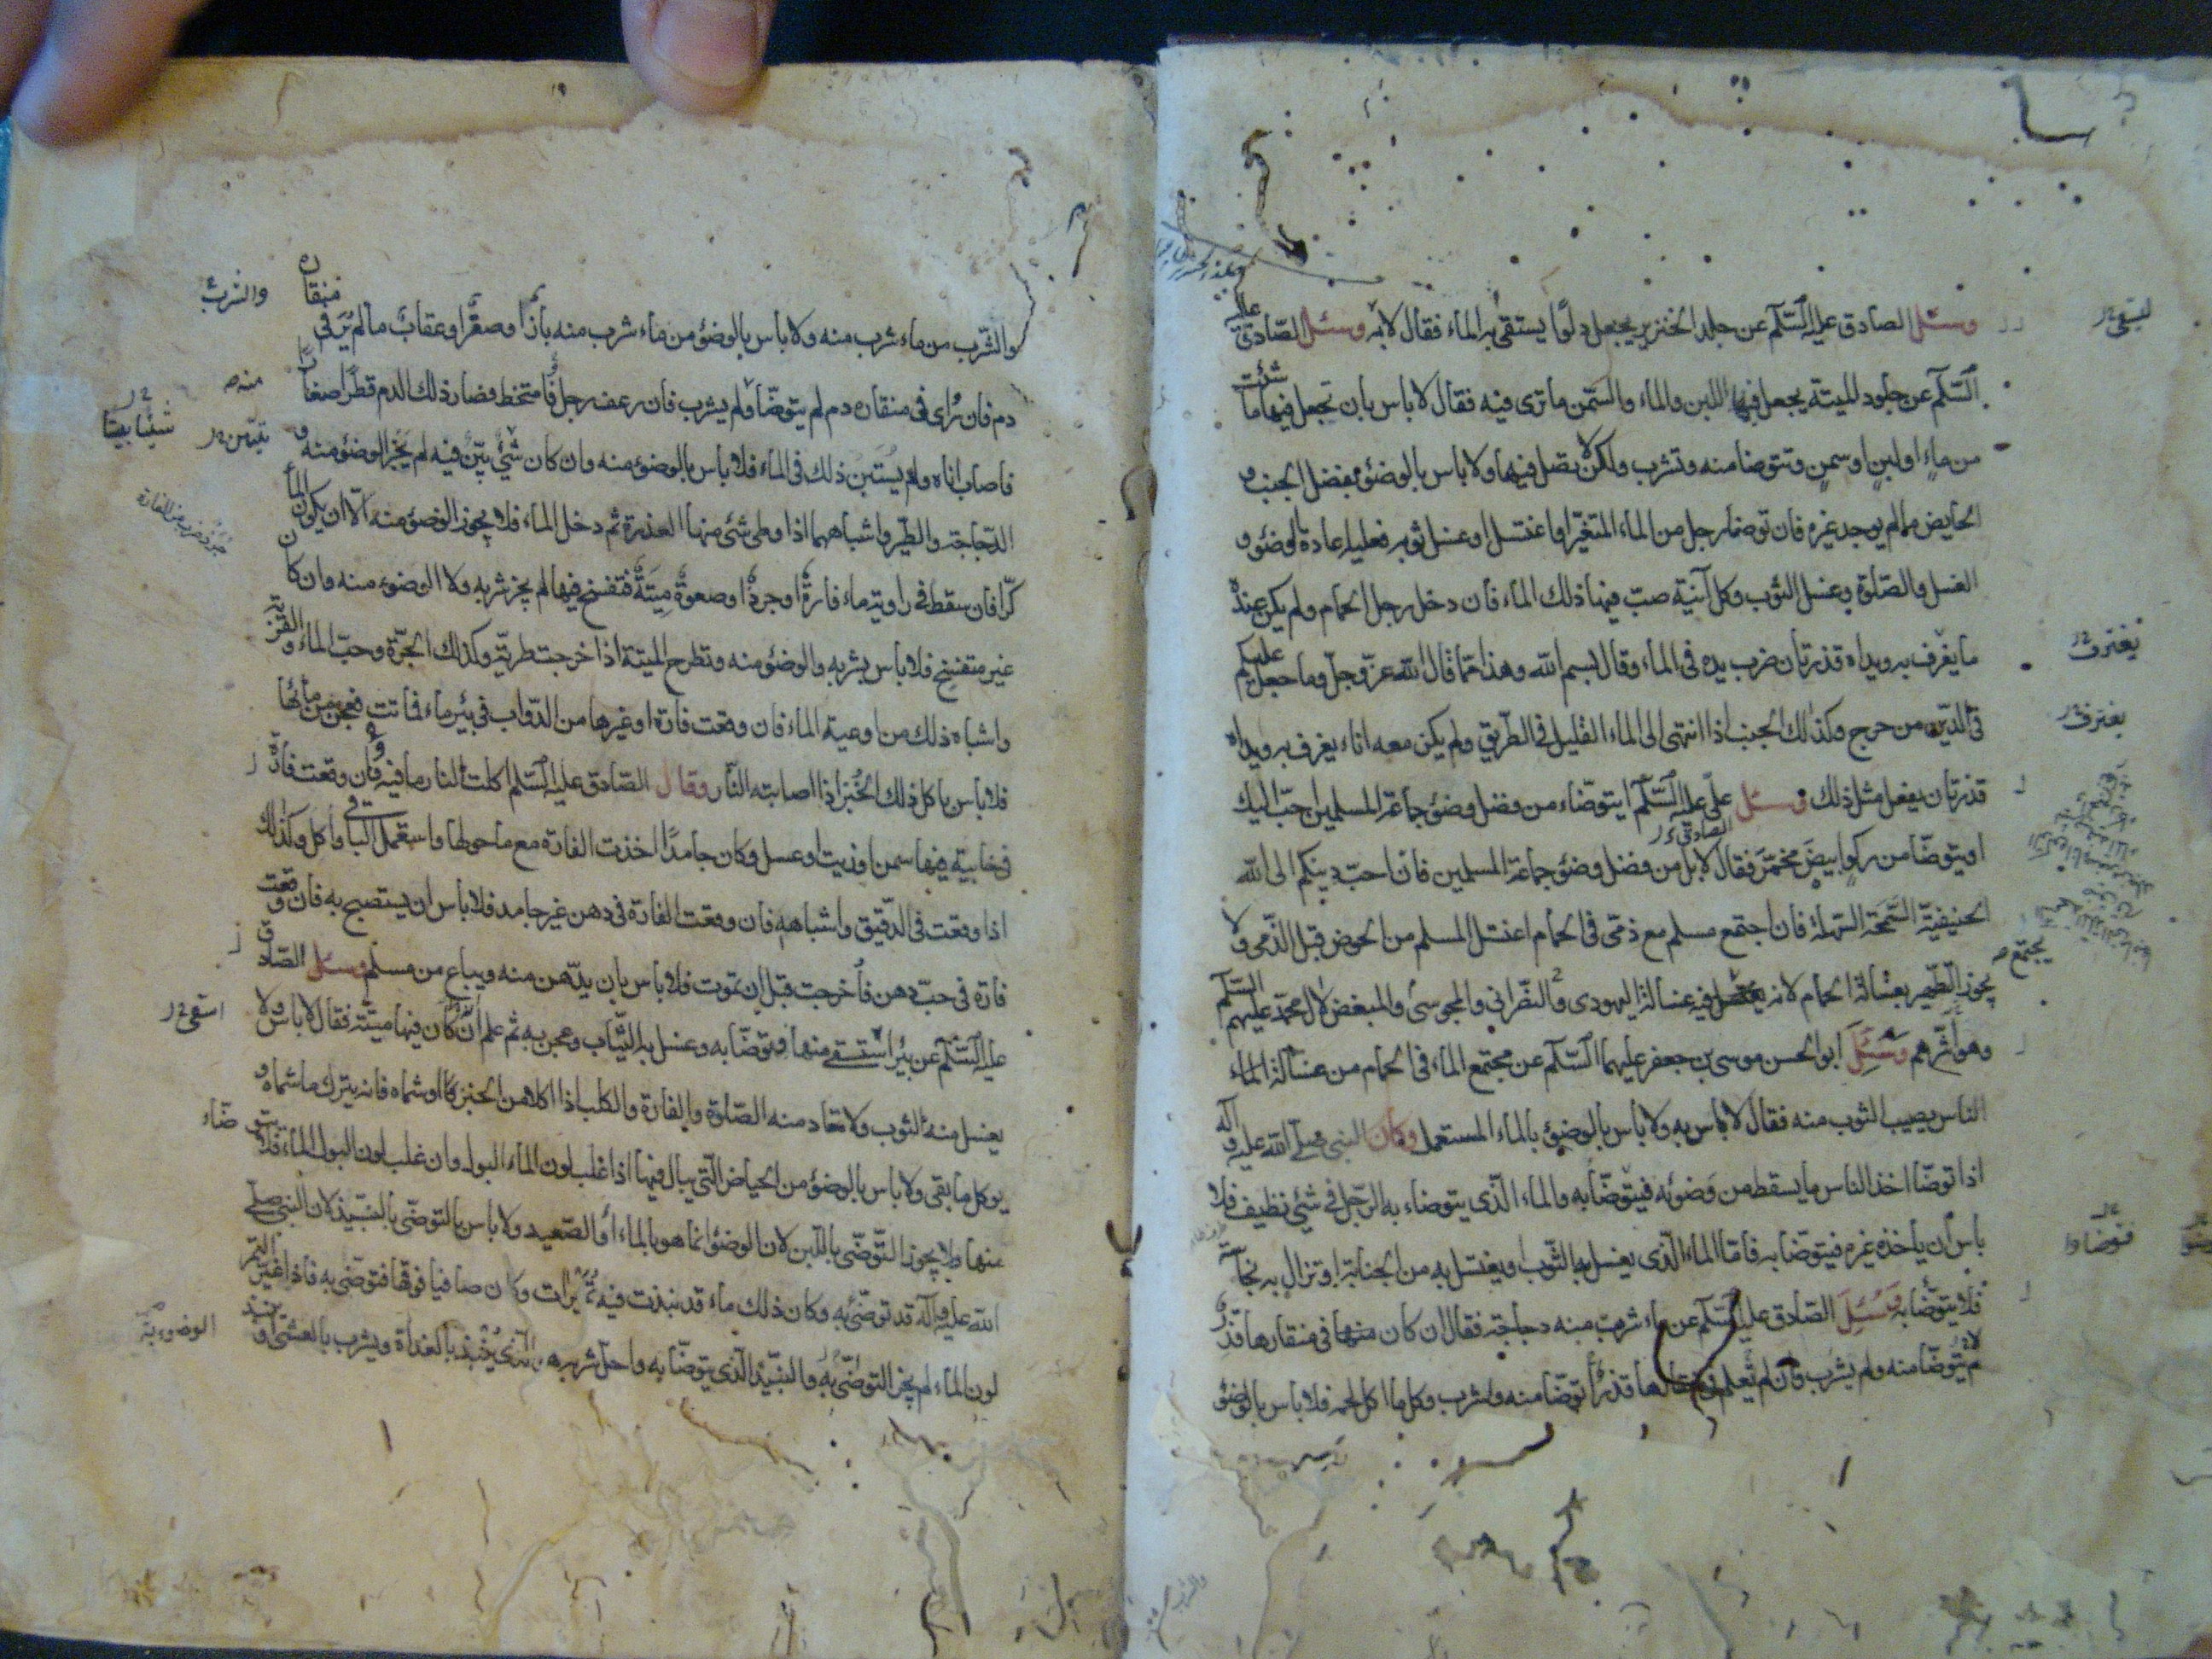 وسئل الصادق عليه السّلم عن جلد الخنزير يجعل دلوًا يستقى به الماء فقال لا باس به وسئل الصّادق عليه
السّلم عن جلود الميتة يجعل فيها اللبن والماء والسّمن ما ترى فيه فقال لا باس بان تجعل فيها ما شئت
من ماءٍ او لبنٍ او سمنٍ وتتوضا منه وتشرب ولكن لا تصل فيها ولا باس بالوضؤ بفضل الجنب و
الحايض ما لم يوجد غيره فان توضأ رجل من الماء المتغيّر او اغتسل او غسل ثوبه فعليه اعادة الوضئ و
الغسل والصّلوة وغسل الثوب وكل آنية صبّ فيها ذلك الماء فان دخل رجل الحمام ولم يكن عنده
ما يغرف به ويداه قذرتان ضرب يده فى الماء وقال بسم الله وهذا ممّا قال الله عزّ وجلّ وما جعل عليكم
فى الدّين من حرج وكذلك الجنب اذا انتهى الى الماء القليل فى الطّريق ولم يكن معه اناء يغرف به ويداه
قذرتان يفعل مثل ذلك وسئل علىّ عليه السّلم ايتوضّاء من فضل وضئ جماعة المسلمين احبّ اليك
او يتوضّا من ركوٍ ابيض مخمّر فقال لا بل من فضل وضئ جماعة المسلمين فان احبّ دينكم الى الله
الحنيفيّة السّمحة السّهلة فان اجتمع مسلم مع ذمّى فى الحمام اغتسل المسلم من الحوض قبل الذّمى ولا
يجوز التّطهير بغسالة الحمام لانه يجتمع فيه غسالة اليهودى والنصرانى والمجوسىّ والمبغض لال محمّد عليهم السّلم
وهو اشرّهم وسئل ابو الحسن موسى بن جعفر عليهما السّلم عن مجتمع الماء فى الحمام من غسالة الماء
الناس يصيب الثوب منه فقال لا باس به ولا باس بالوضؤ بالماء المستعمل وكان النبى صلى الله عليه وآله
اذا توضّا اخذ الناس ما يسقط من وَضوئه فيتوضّا به والماء الّذى يتوضاء به الرّجل فى شئ نظيف فلا
باس ان ياخذه غيره فيتوضّا به فامّا الماء الّذى يغسل به الثّوب ويغتسل به من الجنابة او تزال به نجاسة
فلا يتوضّا به وسُئِلَ الصّادق عليه السّلم عن ماء شربت منه دجاجة فقال ان كان منها فى منقارها قذر
لم يتوضّا منه ولم يشرب وان لم تعلم فى منقارها قذرًا توضّا منه واشرب وكل ما اكل لحمه فلا باس بالوضؤ
ليستقى
يغترف
يغترف
يجتمع
فتوضاوا
والشّرب من ماء شرب منه ولا باس بالوضؤ من ماء شرب منه باز او صقر او عقاب ما لم يُرَ فى منقاره
دم فان رُاى فى منقاره دم لم يتوضّا ولم يشرب فان رعف رجل فامتخط فصار ذلك الدم قطرًا صغارًا
فاصاب اناه ولم يستبن ذلك فى الماء فلا باس بالوضوء منه وان كان شئ بيّن فيه لم يجز الوضؤ منه و
الدّجاجة والطّير واشباههما اذا وطى شئ منها العذرة ثم دخل الماء فلا يجوز الوضؤ منه الّا ان يكون الماء
كرّا فان سقط فى راوية ماء فارةٌ او جرذٌ او صعوةٌ ميتةٌ فتفسّخ فيها لم يجز شربه ولا الوضوء منه وان كان
غير متفسّخ فلا باس بشربه والوضؤ منه وتطرح الميتة اذا خرجت طريّة وكذلك الجرّة وحبّ الماء والقربة
واشباه ذلك من اوعية الماء فان وقعت فارة او غيرها من الدّواب فى بئر ماء فماتت فعجن من مائها
فلا باس باكل ذلك الخبز اذا اصابته النّار وقال الصّادق عليه السّلم اكلت النار ما فيه فان وقعت فارة
فى خابية فيها سمن او زيت او عسل وكان جامدًا اخذت الفارة مع ما حولها واستعمل الباقى واكل وكذلك
اذا وقعت فى الدّقيق واشباهه فان وقعت الفارة فى دهن غير جامد فلا باس ان يستصبح به فان وقعت
فارة فى حبّ دهن فاخرجت قبل ان تموت فلا باس بان يدّهن منه ويباع من مسلم وسئل الصّادق
عليه السّلم عن بئر استقى منها فتوضّا به وغسل به الثّياب وعجن به ثم علم انّه كان فيها ميتة فقال لا باس ولا
يغسل منه الثوب ولا تعاد منه الصّلوة والفارة والكلب اذا اكلا من الخبز او شماه فانه يترك ما شماه و
يوكل ما بقى ولا باس بالوضؤ من الحياض الّتى يبال فيها اذا غلب لون الماء البول وان غلب لون البول الماء فلا يتوضّاء
منها ولا يجوز التّوضّى باللّبن لان الوضؤ انما هو بالماء او الصّعيد ولا باس بالتوضّى بالنبيذ لان النبى صلى
الله عليه وآله قد توضّئ به وكان ذلك ماء قد نبذت فيه تميرات وكان صافيا فوقها فتوضّى به فاذا غيّر التمر
لون الماء لم يجز التوضّى به والنبيذ الّذى يتوضّا به واحلّ شربه هو الّذى ينبذ بالغداة ويشرب بالعشىّ او ينبذ
والشرب
منه
شيئا بينا
استقى
الوضوء به